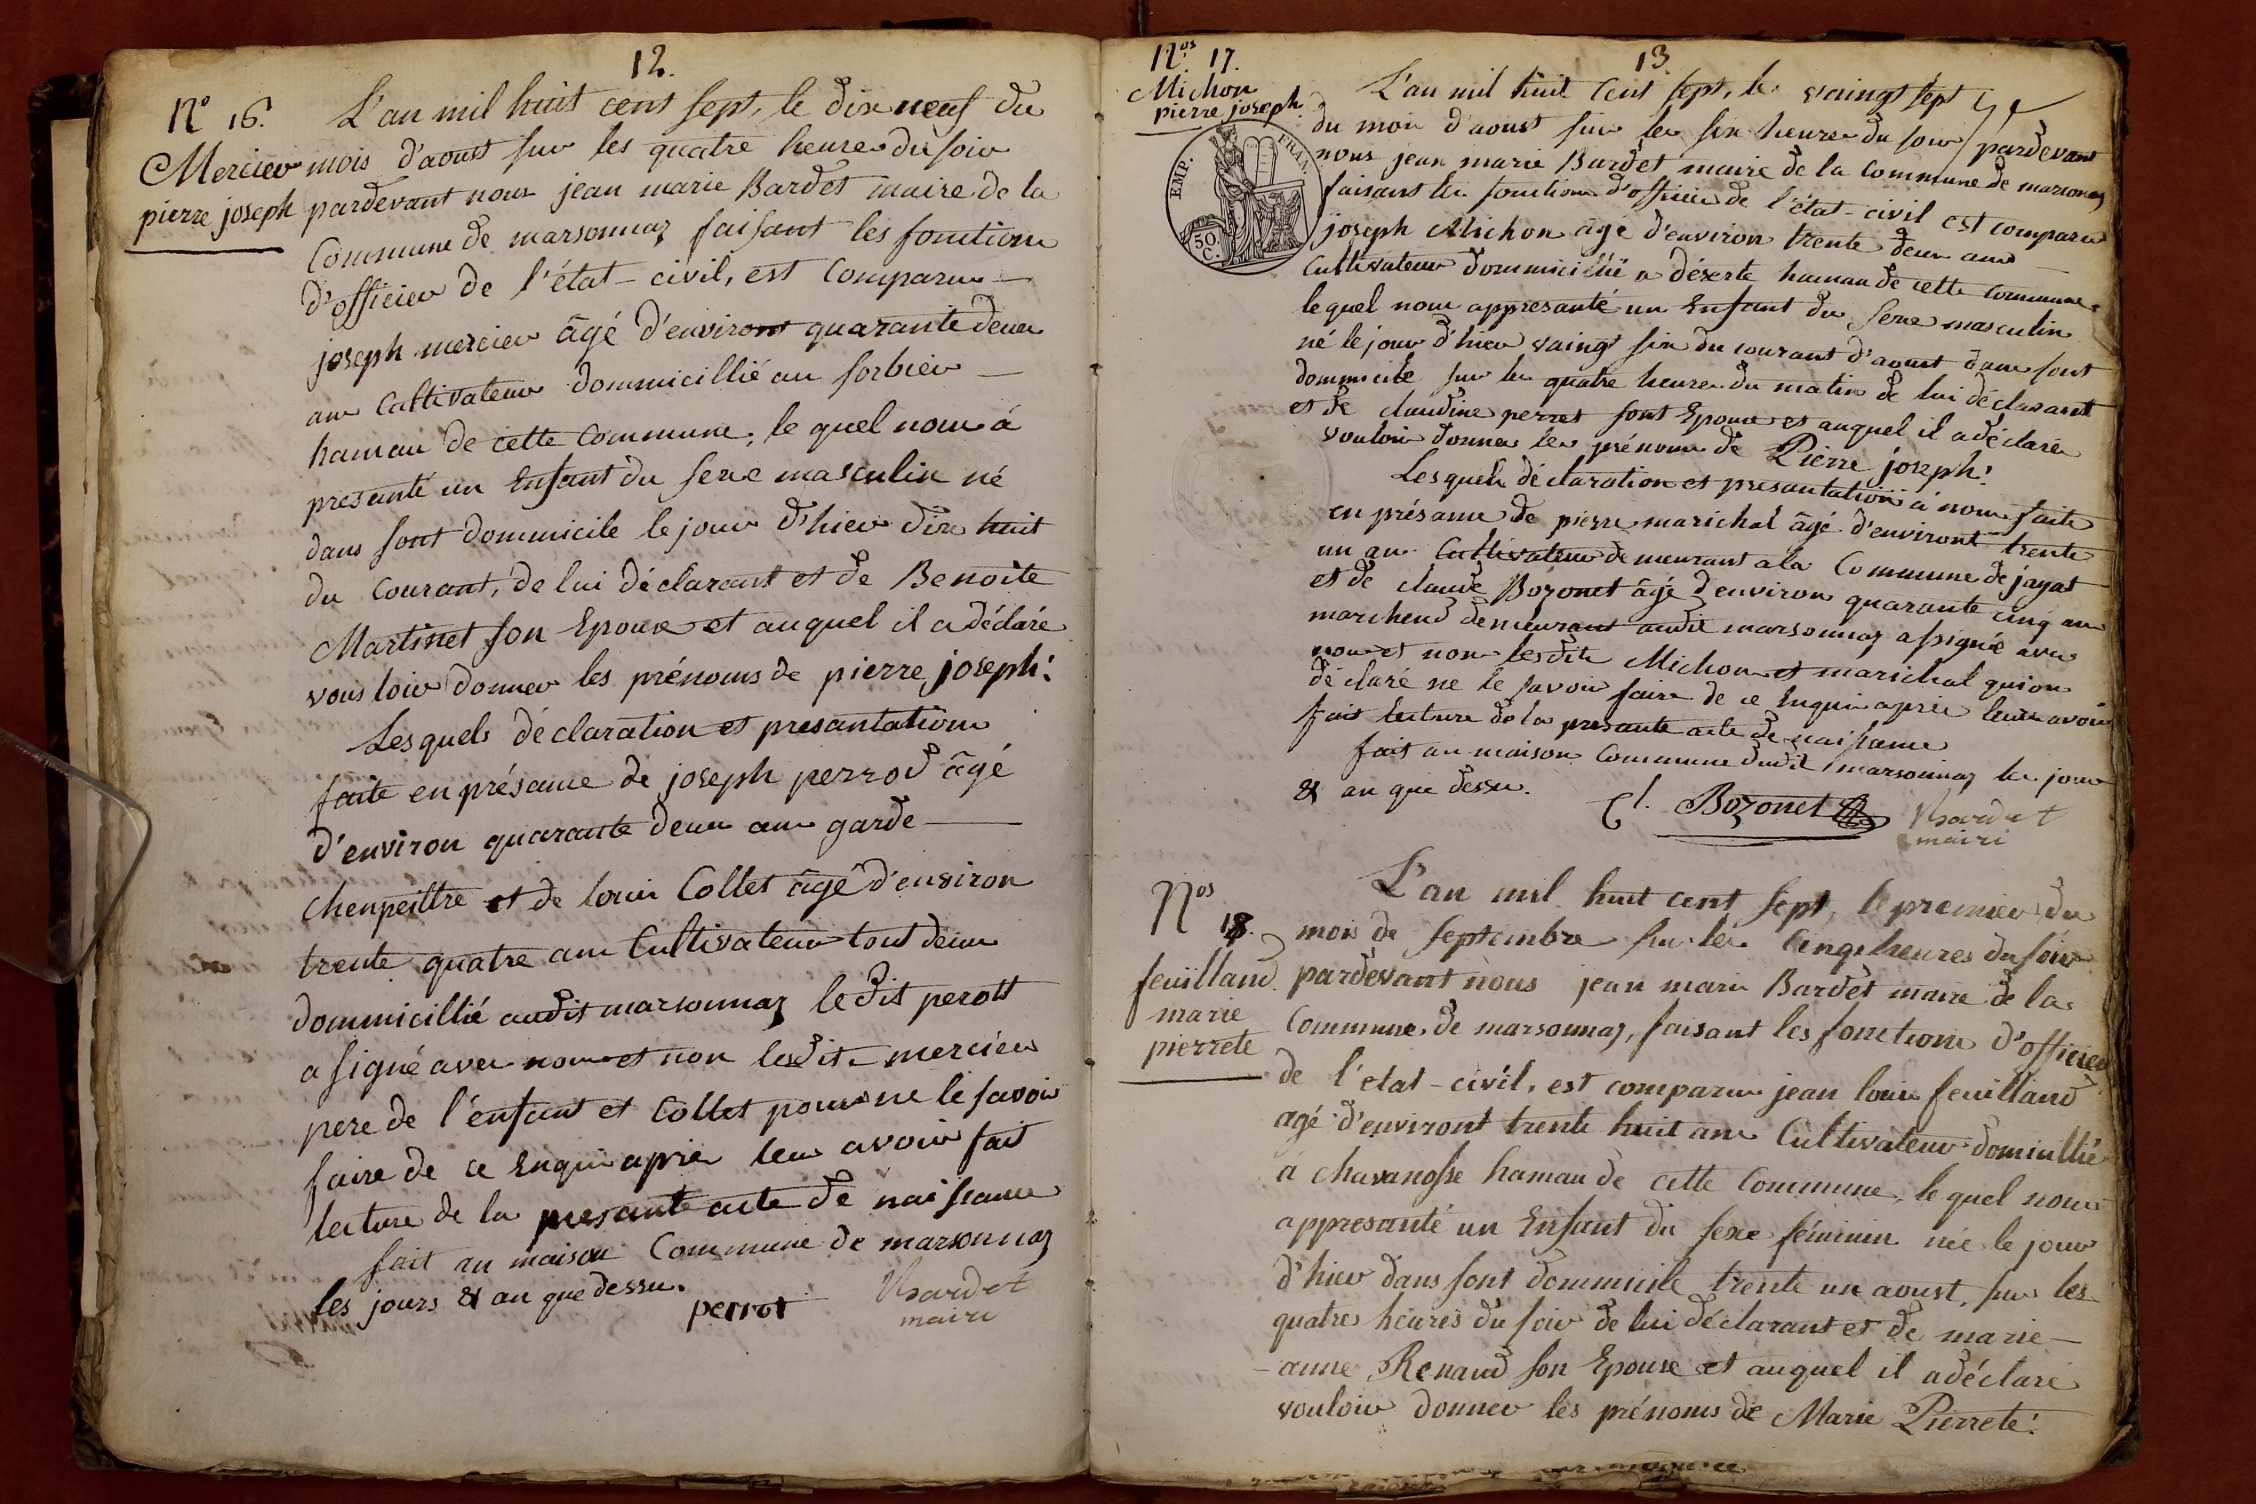 12.
N° 16.
Mercier
pierre joseph
L'an mil huit cent sept, le dix neuf du
mois d'aoust sur les quatre heures du soir
pardevant nous jean marie Bardet maire de la
Commune de marsonnaz faisant les fonctions
d'officier de l'état-civil, est Comparu
joseph mercier âgé d'environt quarante deux
ans Cultivateur dommicillié au sorbier
hamau de cette Commune, le quel nous à
presanté un Enfant du sexe masculin né
dans sont dommicile le jour d'hier dix huit
du Courant, de lui déclarant et de Benoite
Martinet son Epouse et auquel il a déclaré
vousloir donner les prénoms de pierre joseph.
Lesquels déclaration et presantation
faite en présance de joseph perrod âgé
d'environ quarante deux ans garde
chenpeittre et de louis Collet âgé d'environ
trente quatre ans Cultivateur tout deux
dommicillié audit marsonnaz ledit perott
a signé avec nous et non lesdits mercier
pere de l'enfant et Collet pour ne le savoir
faire de ce Enquis après leur avoir fait
lecture de la presante acte de naissance
fait au maison Commune de marsonnaz
les jours & an que dessu.
perrot
Bardet
maire
13
Nos 17.
Michon
pierre joseph
EMP. FRAN.
50.
C.
L'an mil huit Cent sept, le vaingt sept
du mois d'aoust sur les six heures du soir pardevant
nous jean marie Bardet maire de la Commune de marsonaz
faisant les fonctions d'officier de l'état-civil est comparu
joseph Michon âgé d'environ trente deux ans
Cultivateur dommicillié a déserte hamau de cette Commune
lequel nous appresanté un Enfant du sexe masculin
né le jour d'hier vaingt six du courant d'aoust dans sont
dommicile sur les quatre heures du matin de lui déclarant
et de claudine perret sont Epouse et auquel il a déclaré
vouloir donner les prénoms de Pierre joseph.
Lesquels déclaration et presantation à nous faite
en présance de pierre marichal âgé d'environt trente
un ans Cultivateur demeurant a la Commune de jayat
et de claude Bozonet âgé d'environ quarante cinq ans
marchend demeurant audit marsonnaz a signé avec
nous et non lesdits Michon et marichal qui on
déclaré ne le savoir faire de ce Enquis après leur avoir
fait lecture de la presante acte de naissance
fait au maison Commune dudit marsonnaz les jour
& an que dessu.
Cl. Bozonet
Bardet
maire
Nos
18.
feuilland
marie
pierrete
L'an mil huit cent sept, le premier du
mois de septembre sur les Cinq heures du soir
pardevant nous jean marie Bardet maire de la
Commune de marsonnaz, faisant les fonctions d'officier
de l'etat-civil, est comparu jean louis feuilland
agé d'environt trente huit ans Cultivateur domicillié
à chavanosse hamau de cette Commune, le quel nous
appresanté un Enfant du sexe féminin née le jour
d'hier dans sont dommicile trente un aoust, sur les
quatres heures du soir de lui déclarant et de marie-
-anne Renaud son Epouse et auquel il a déclaré
vouloir donner les prénoms de Marie Pierrete.